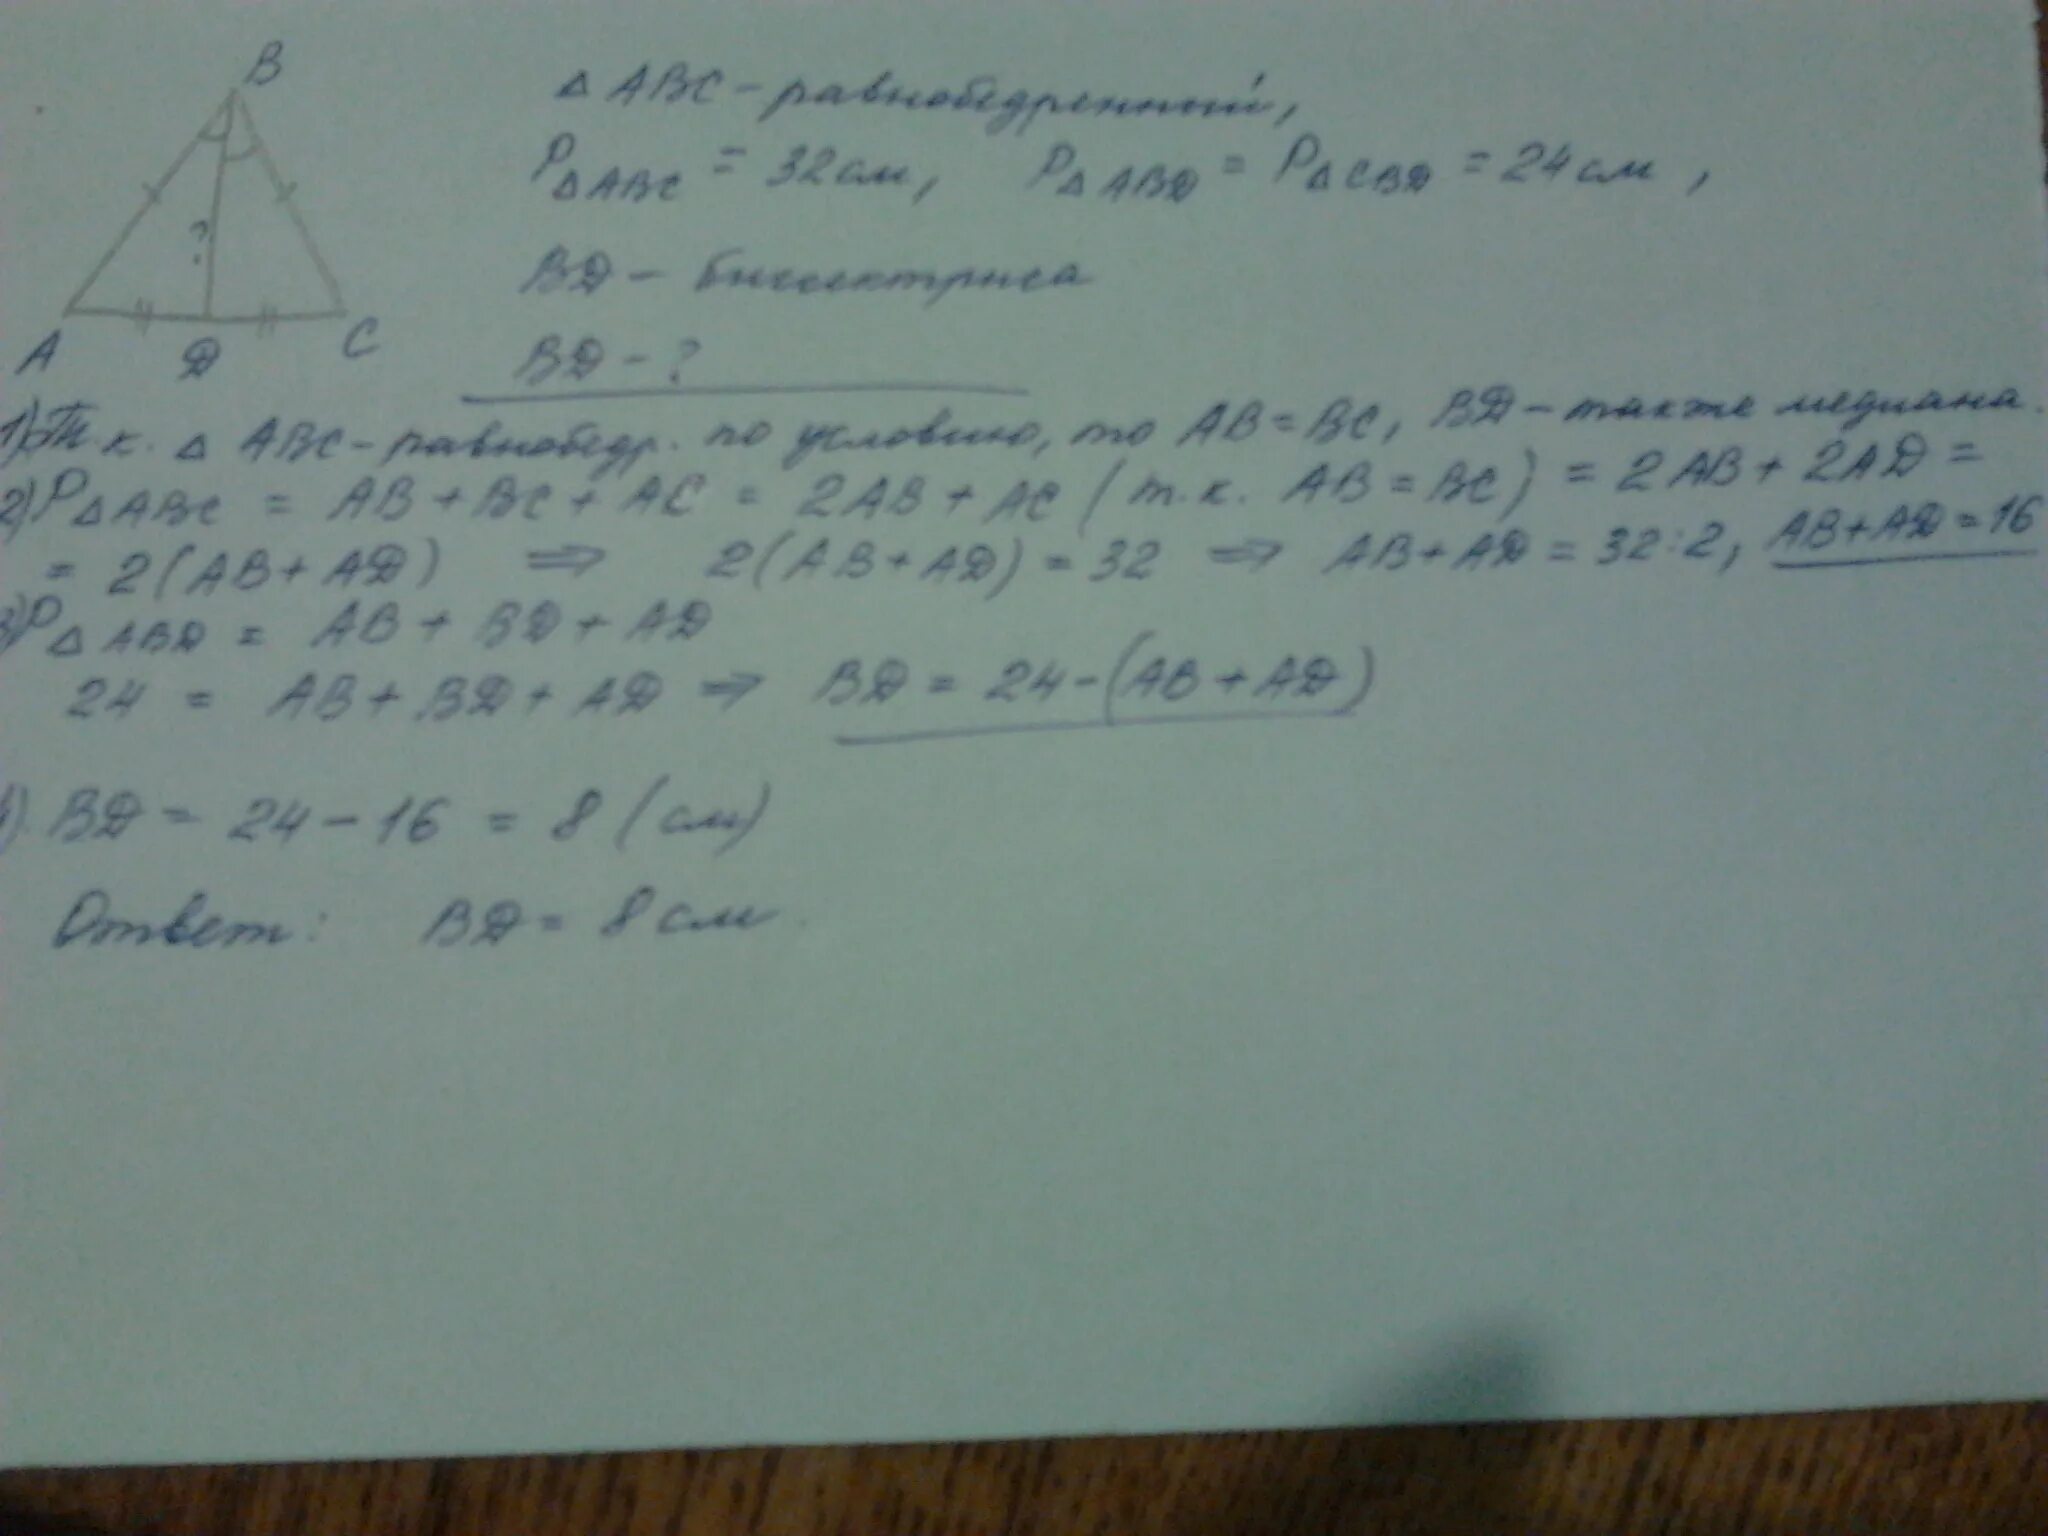 B
△ ABC - равнобедренный,
P△ABC = 32 см, P△ABD = P△CBD = 24 см,
BD - биссектриса
?
A D C
BD - ?
1) Т.к. △ ABC - равнобедр. по условию, то AB = BC, BD - также медиана.
2) P△ABC = AB + BC + AC = 2AB + AC (т.к. AB = BC) = 2AB + 2AD =
= 2(AB + AD) ⇒ 2(AB + AD) = 32 ⇒ AB + AD = 32 : 2, AB + AD = 16
3) P△ABD = AB + BD + AD
24 = AB + BD + AD ⇒ BD = 24 - (AB + AD)
4). BD = 24 - 16 = 8 (см)
Ответ: BD = 8 см.